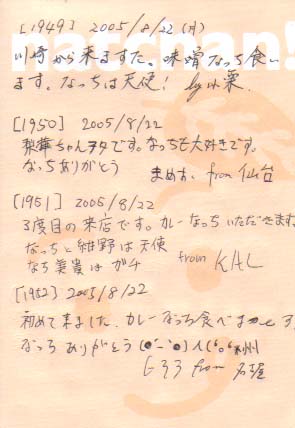 [1949] 2005/8/22 (月)
nacchan!
川崎から来ますた。味噌なっち食い
ます。なっちは天使! by 小栗
[1950] 2005/8/22
梨華ちゃんヲタです。なっちも大好きです。
なっちありがとう
まめお、from 仙台
[1951] 2005/8/22
3度目の来店です。カレーなっちいただきます
なっちと紺野は天使
なち美貴はガチ from KAL
[1952] 2005/8/22
初めて来ました。カレーなっち食べま す。
なっちありがとう
from 名古屋